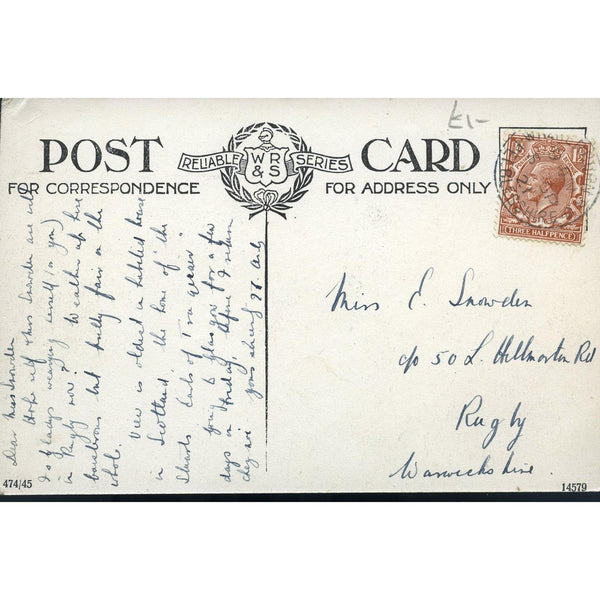 £1-
POST CARD
RELIABLE WR & S SERIES
FOR CORRESPONDENCE
FOR ADDRESS ONLY
THREE HALFPENCE
Dear Miss Snowden
Hope self & Miss Snowden are well
in Rugby now. Weather up here
but fully fair on the
whole.
View is oldest inhabited house
in Scotland, the home of the
Stuarts Earls of Traquair
going to Glasgow for a few
days on Friday, before I return
yours
Miss E. Snowden
c/o 50 L. Hillmorton Rd
Rugby
Warwickshire.
474/45
14579